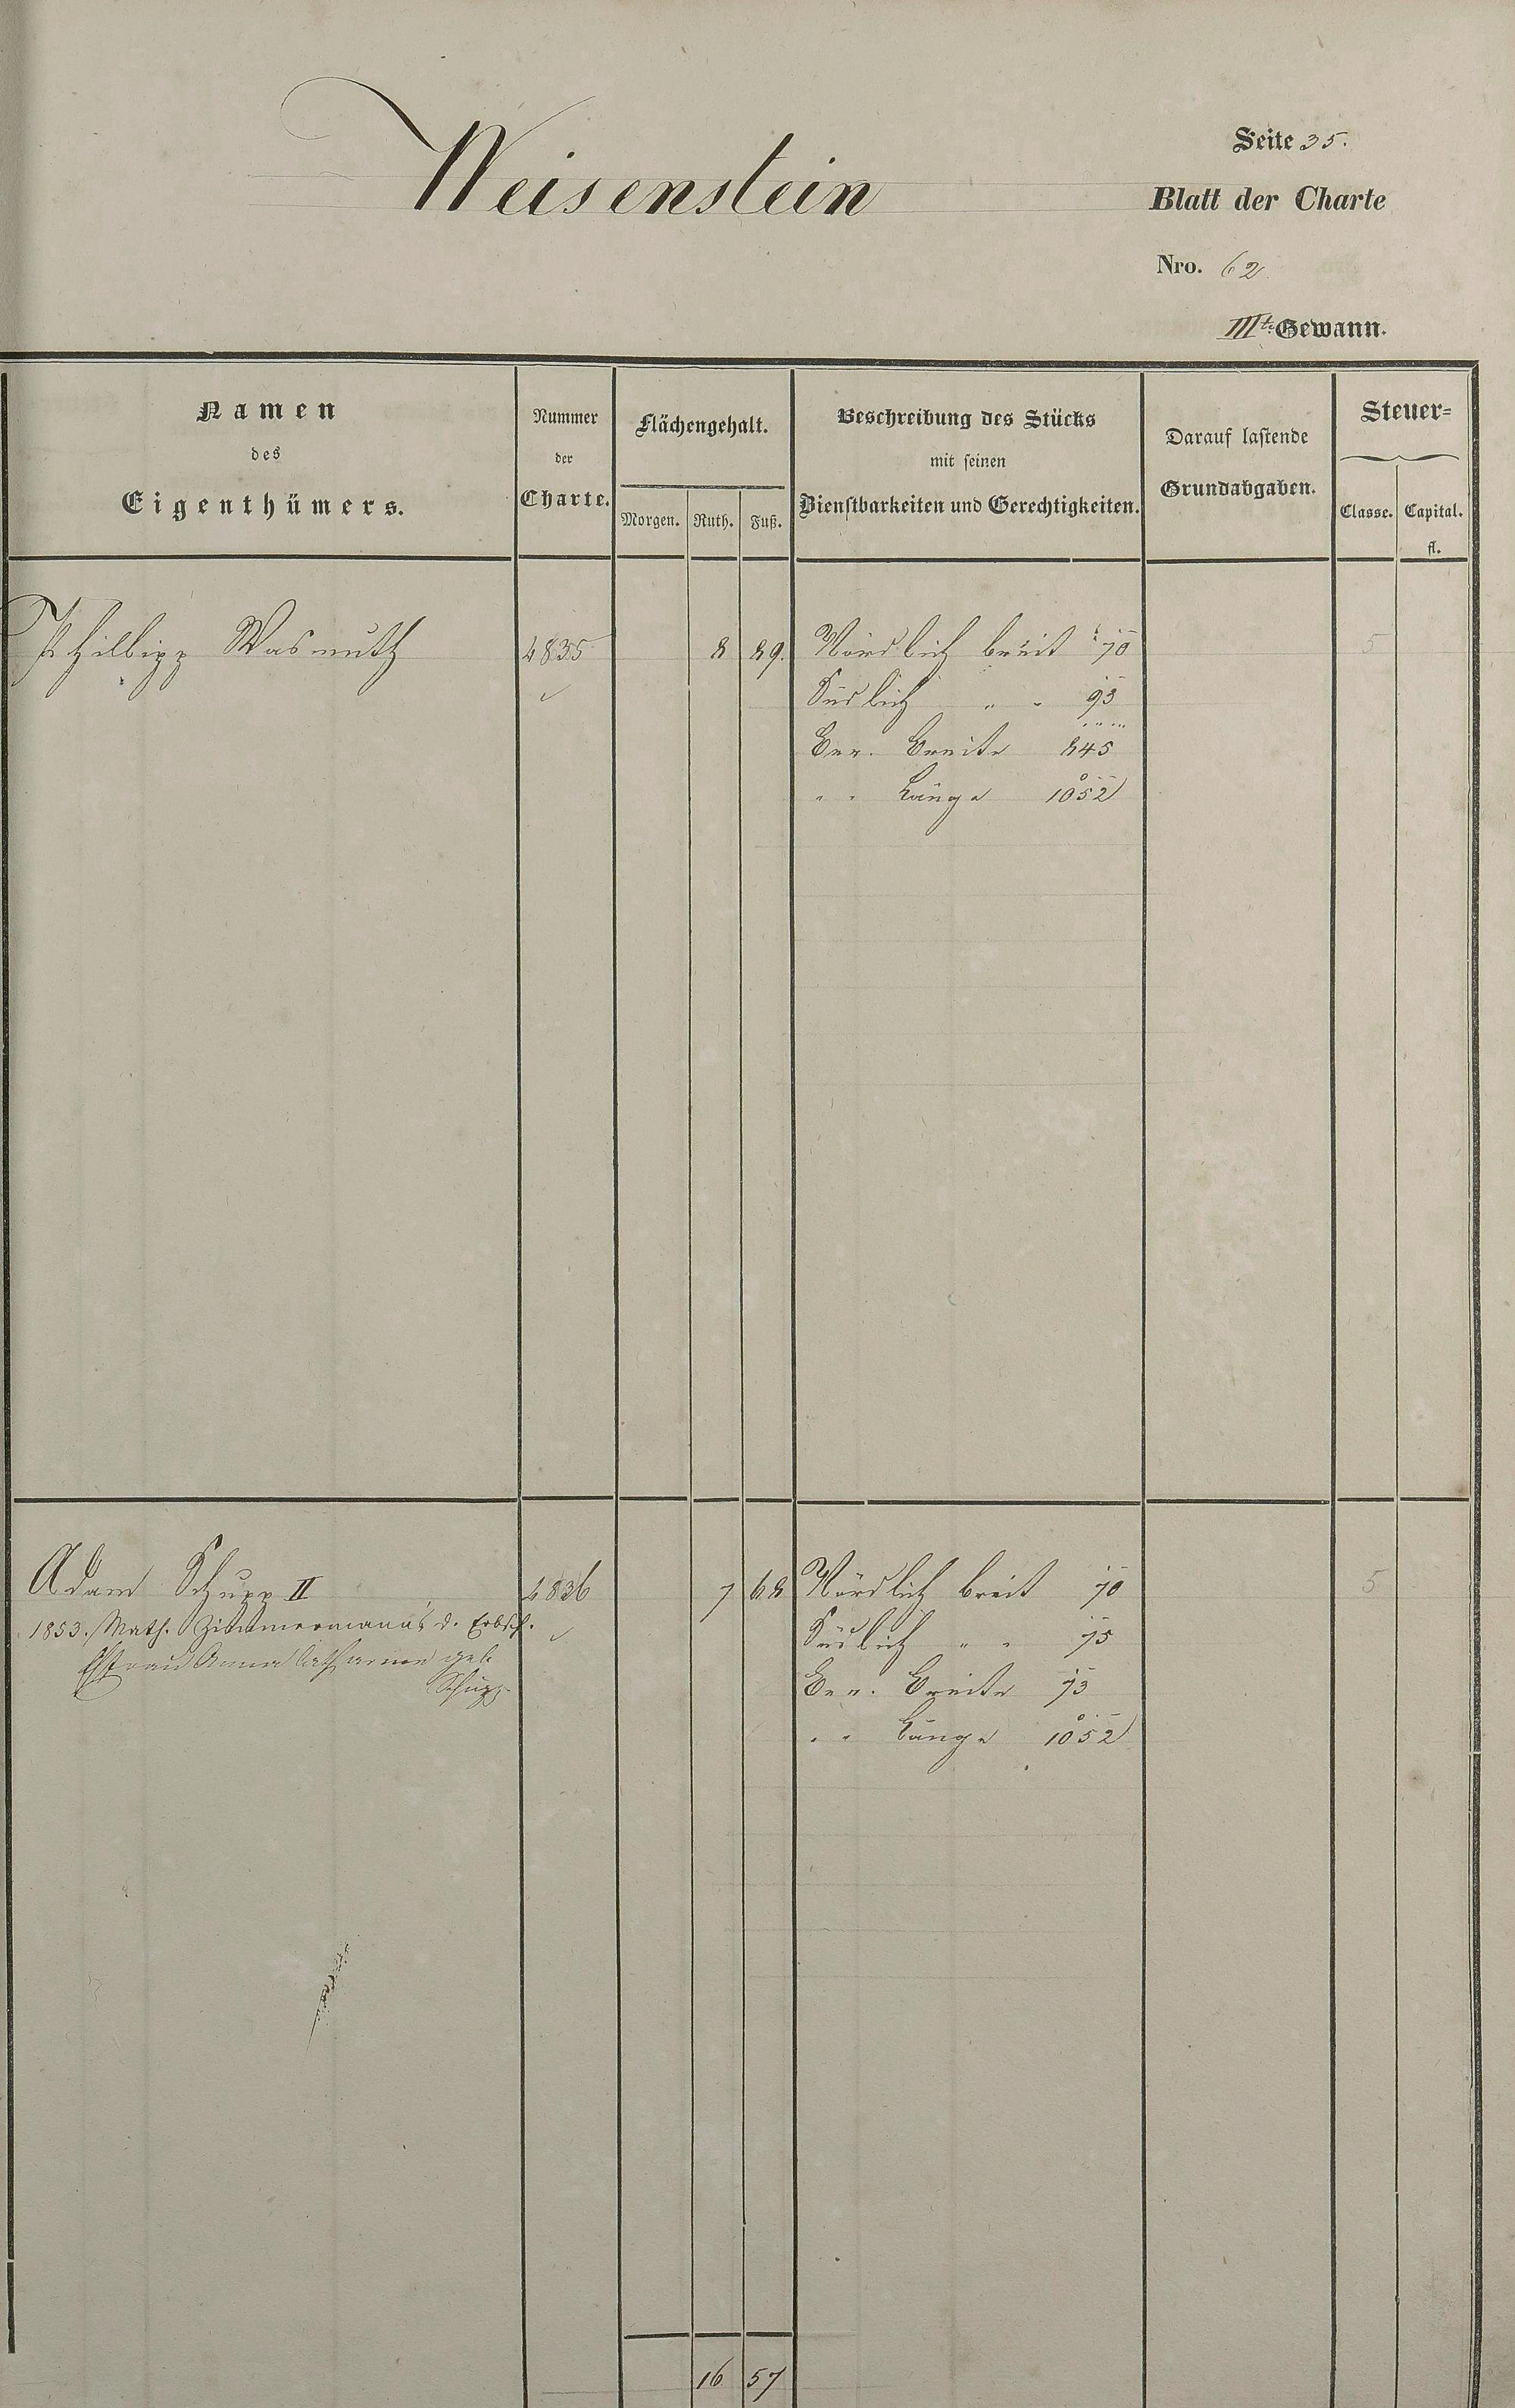 Weisenstein
Seite 35.
Blatt der Charte
Nro. 62
IIIte Gewann.
Namen des Eigenthümers.
Nummer der Charte.
Flächengehalt.
Morgen. Ruth. Fuß.
Beschreibung des Stücks mit seinen Dienstbarkeiten und Gerechtigkeiten.
Darauf lastende Grundabgaben.
Steuer=
Classe. Capital. fl.
Philipp Wasmuth 4835 8 89. Nördlich breit 70 5
Südlich " " 93
Ber. Breite 845
" " Länge 1052
Adam Schupp II 4836 7 68 Nördlich breit 70 5
1853. Math. Zimmermann's d. Erbsch.
Südlich " " 75
Ehefrau Anna Catharina geb.
Schupp
Ber. Breite 73
" " Länge 1052
16 57